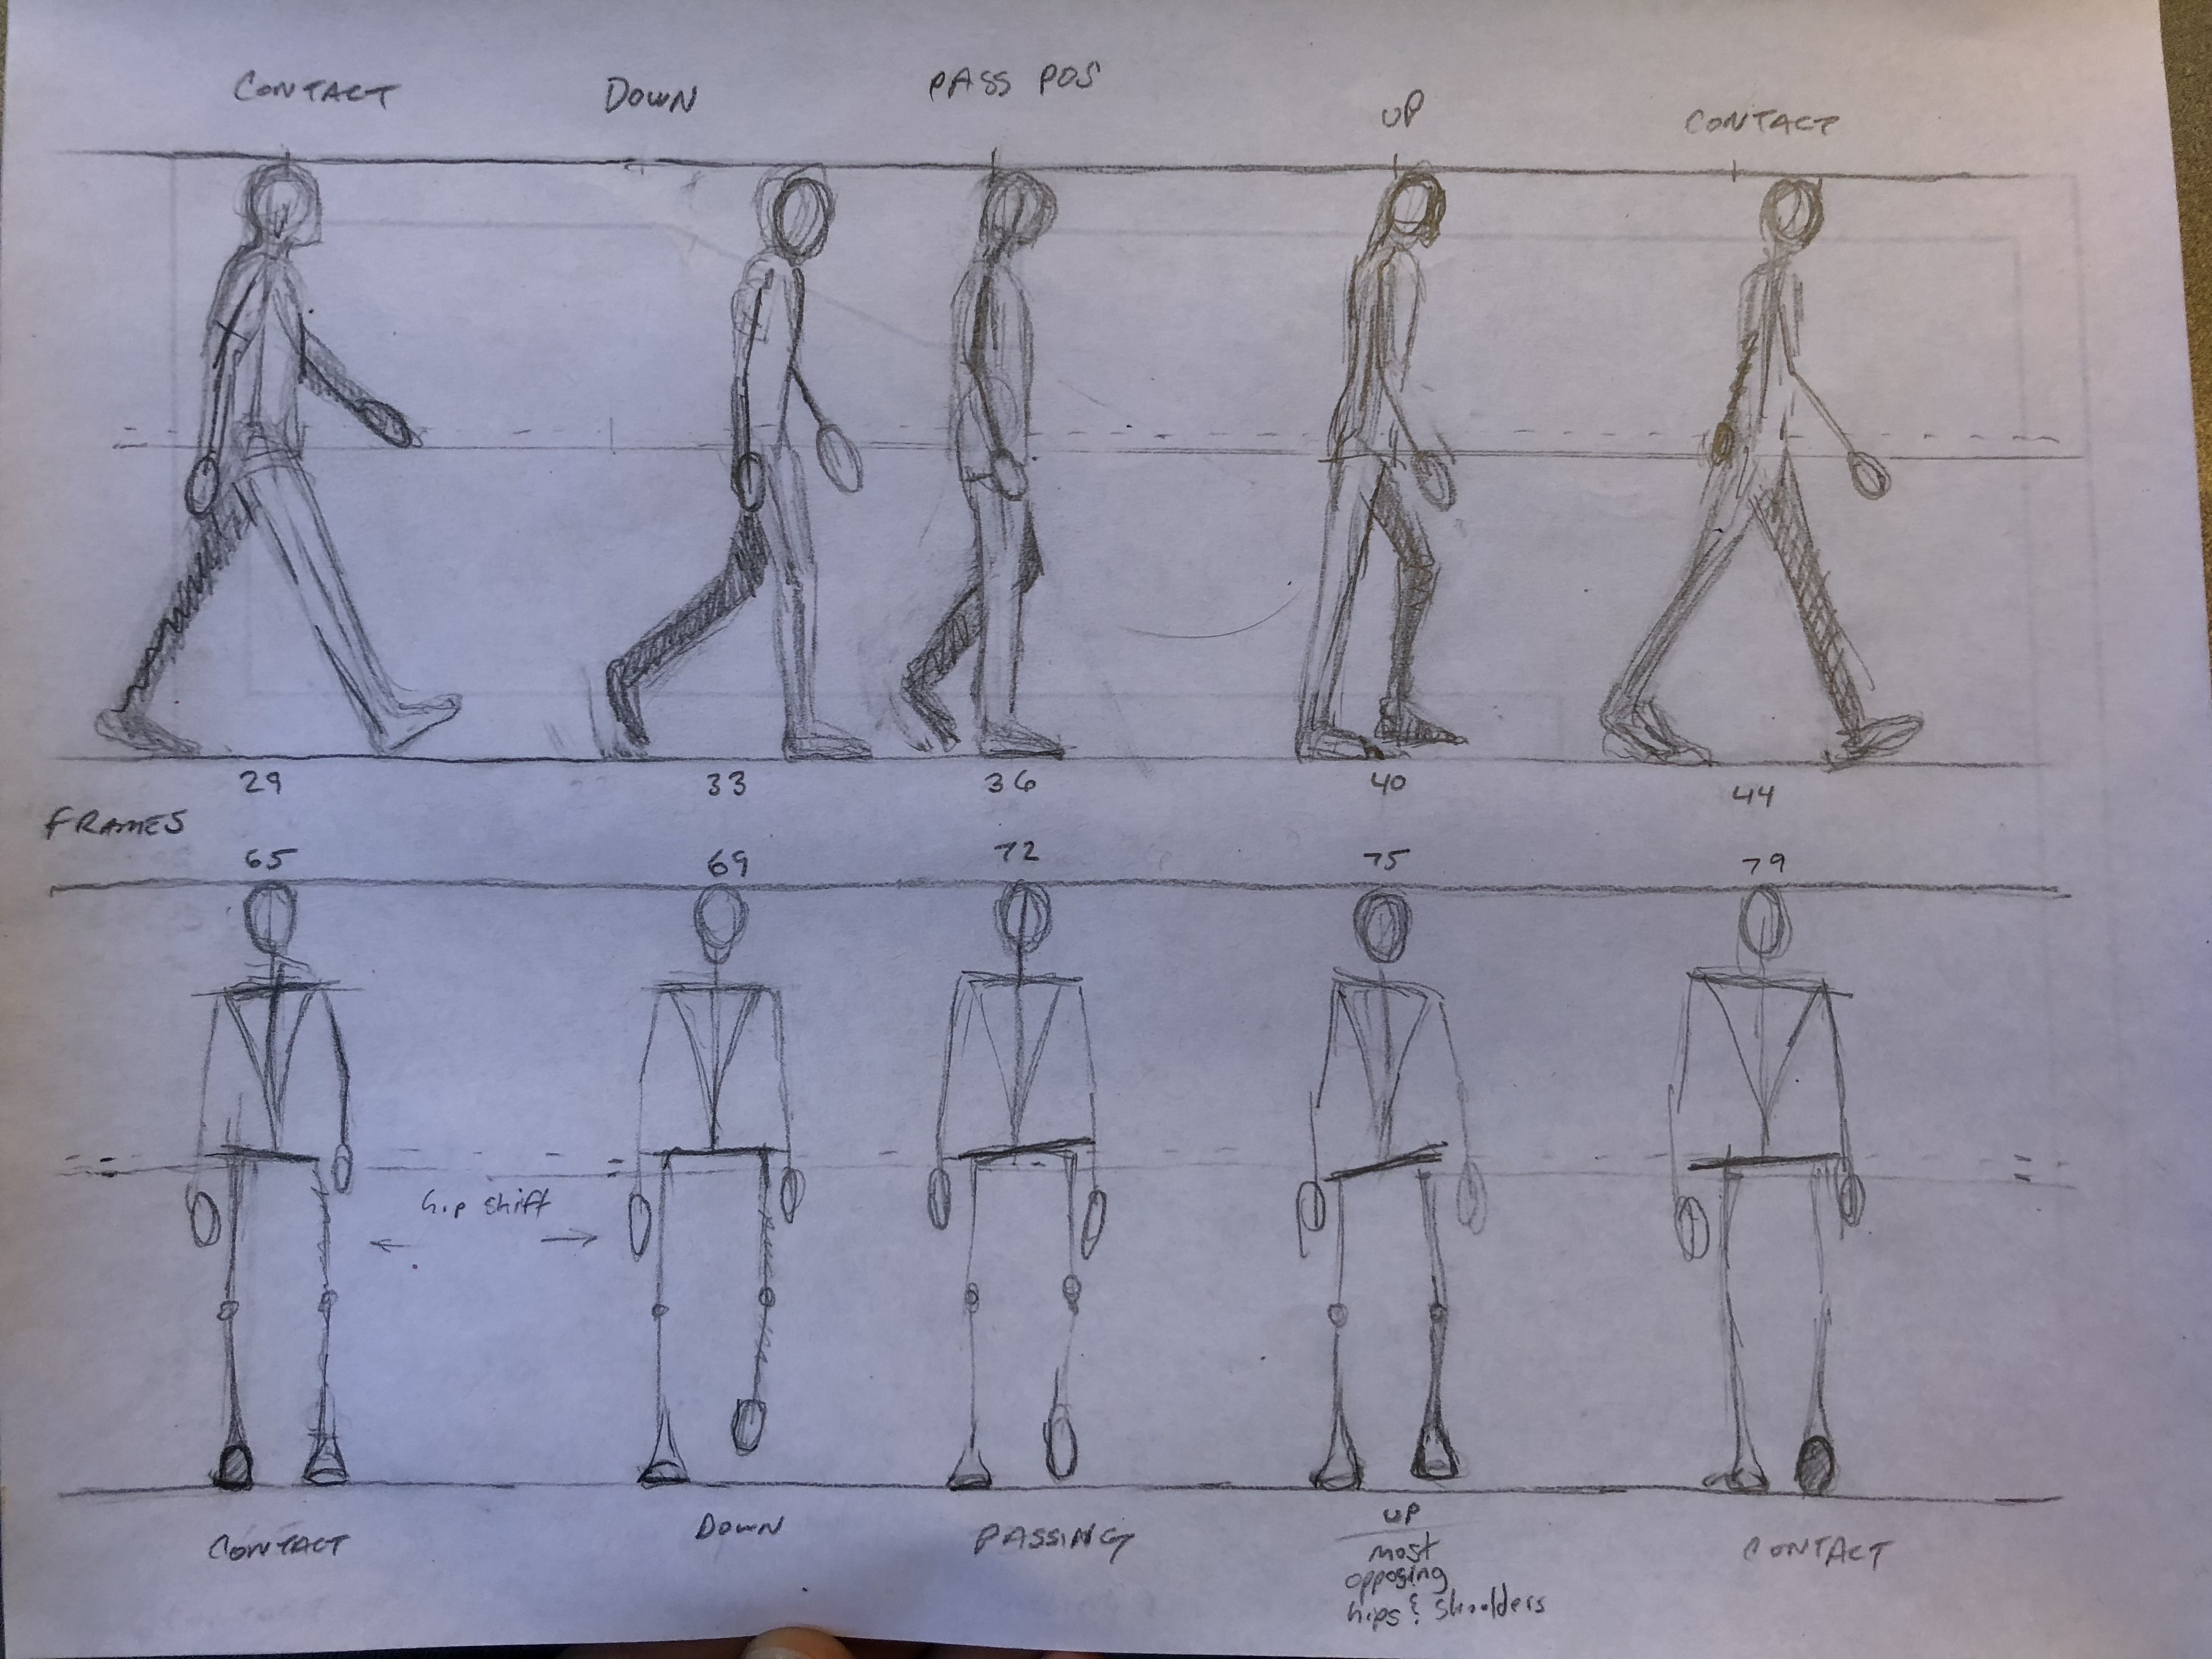 CONTACT
DOWN
PASS POS
UP
CONTACT
29
33
36
40
44
FRAMES
65
69
72
75
79
hip shift
CONTACT
DOWN
PASSING
UP
most
opposing
hips & shoulders
CONTACT